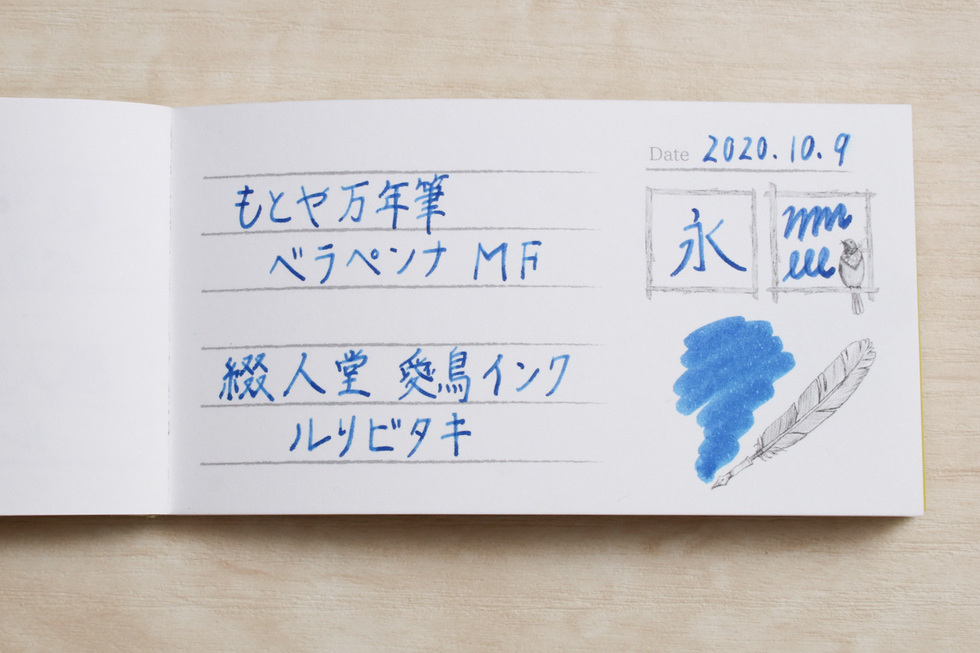 もとや万年筆
ベラペンナ MF
綴人堂 愛鳥インク
ルリビタキ
Date 2020.10.9
永